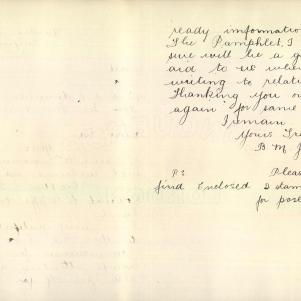 ready informatio
The Pamphlet, I
sure will be a g
aid to us when
writing to relati
Thanking you o
again for same
I remain
Yours Tr
B. M. J
P.S Pleas
find Enclosed 2 stam
for pos